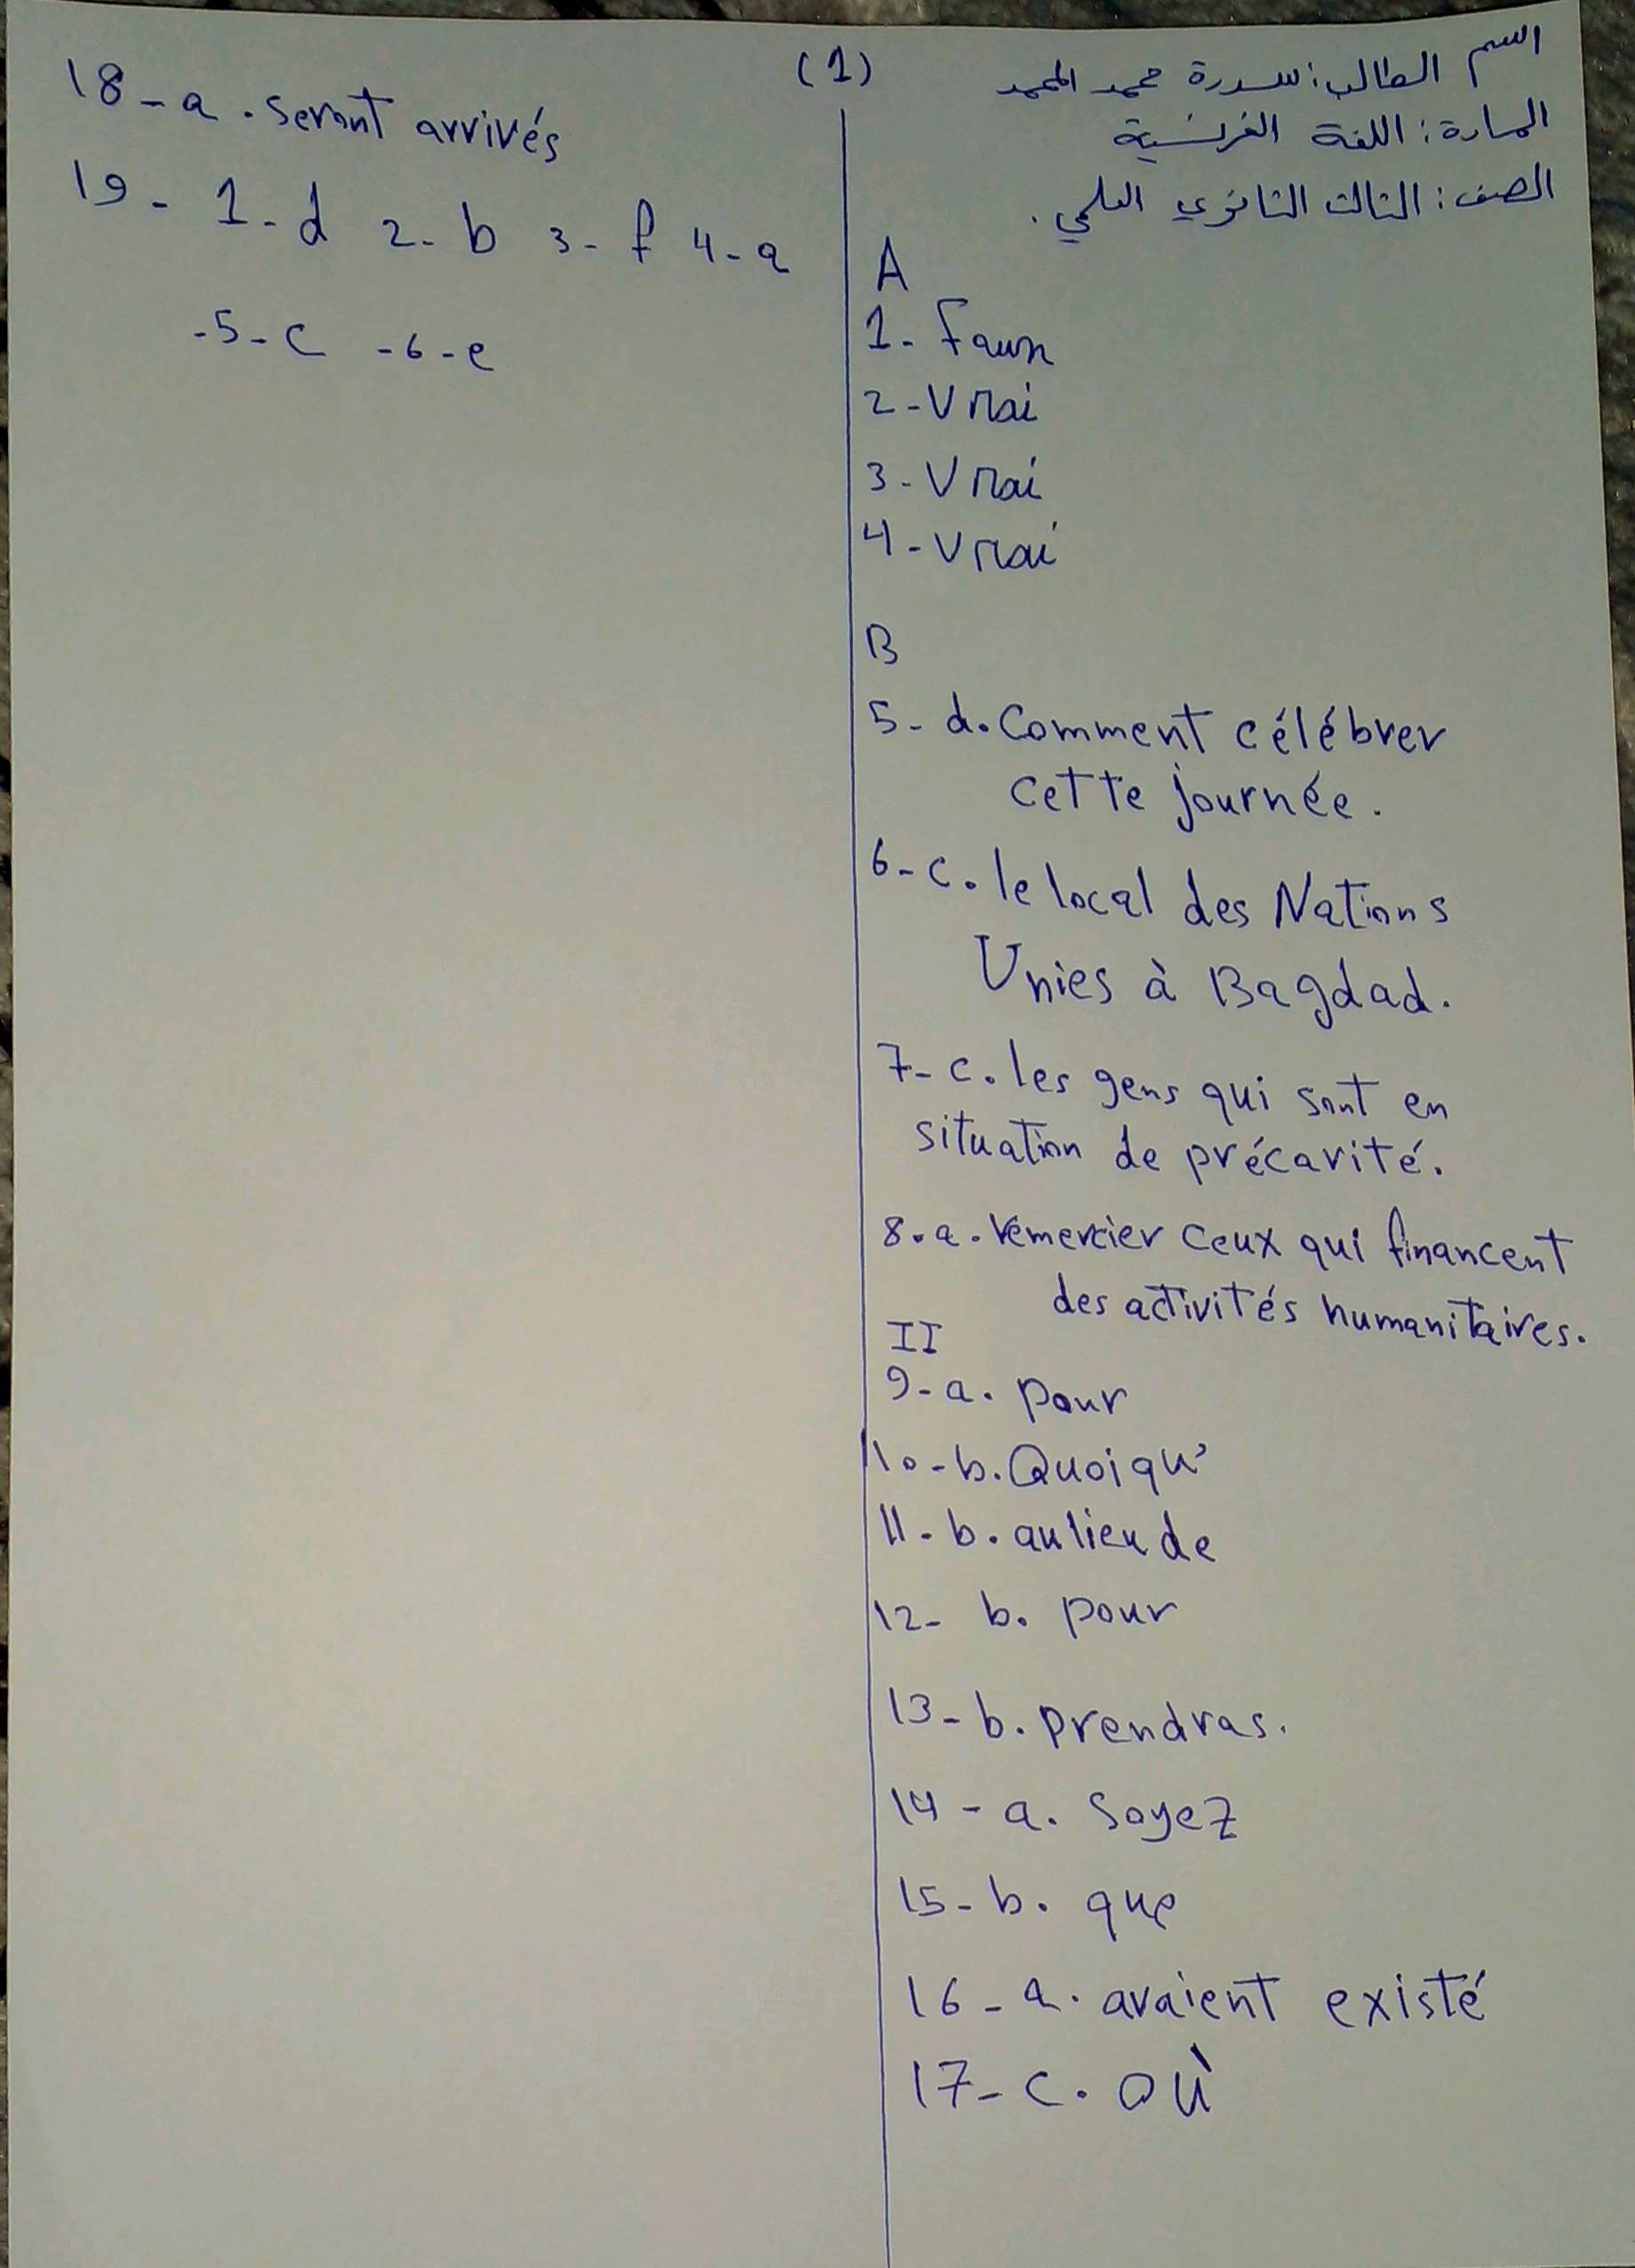 (1)
اسم الطالب: سدرة محمد المحمد
المادة: اللغة الفرنسية
الصف: الثالث الثانوي العلمي.
A
1- Faux
2- Vrai
3- Vrai
4- Vrai
B
5- d. Comment célébrer
cette journée.
6- c. le local des Nations
Unies à Bagdad.
7- c. les gens qui sont en
situation de précarité.
8. a. remercier ceux qui financent
des activités humanitaires.
II
9- a. pour
10- b. Quoiqu'
11- b. au lieu de
12- b. pour
13- b. prendras.
14- a. soyez
15- b. que
16- a. avaient existé
17- c. où
18- a. seront arrivés
19- 1- d 2- b 3- f 4- a
-5- c -6- e